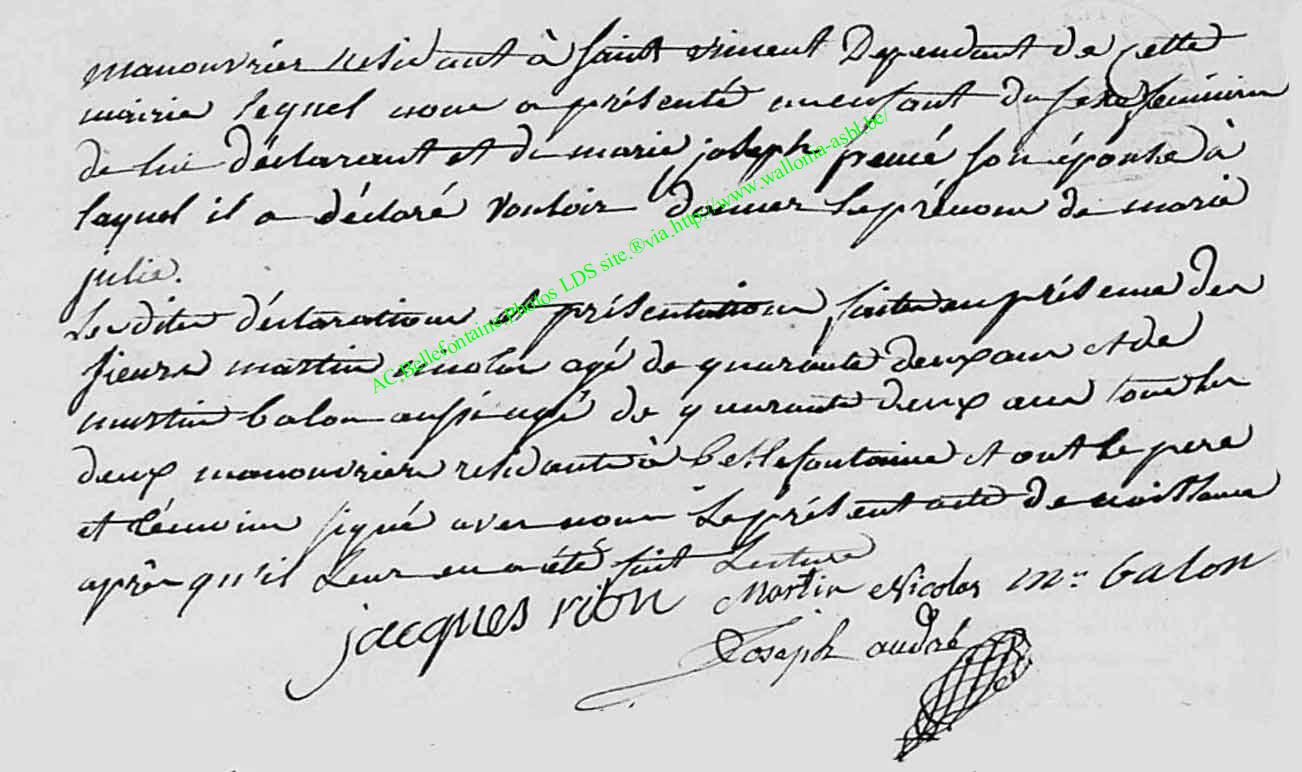 manouvrier residant à saint vincent Dependant de Cette
mairie lequel nous a présenté un enfant du sexe féminin
de lui déclarant et de marie joseph son épouse à
laquel il a déclaré vouloir donner le prénom de marie
julie.
Les dites déclaration et présentation faites en présence des
sieurs martin nicolas agé de quarante deux ans et de
martin balon aussi agé de quarante deux ans tous les
deux manouvriers residants à bellefontaine et ont le pere
et témoins signé avec nous le présent acte de naissance
après qu'il Leur en a été fait Lecture
jacques rion Martin Nicolas mn balon
Joseph andré
AC.Bellefontaine.Photos LDS site.®via.http://www.wallonia-asbl.be/